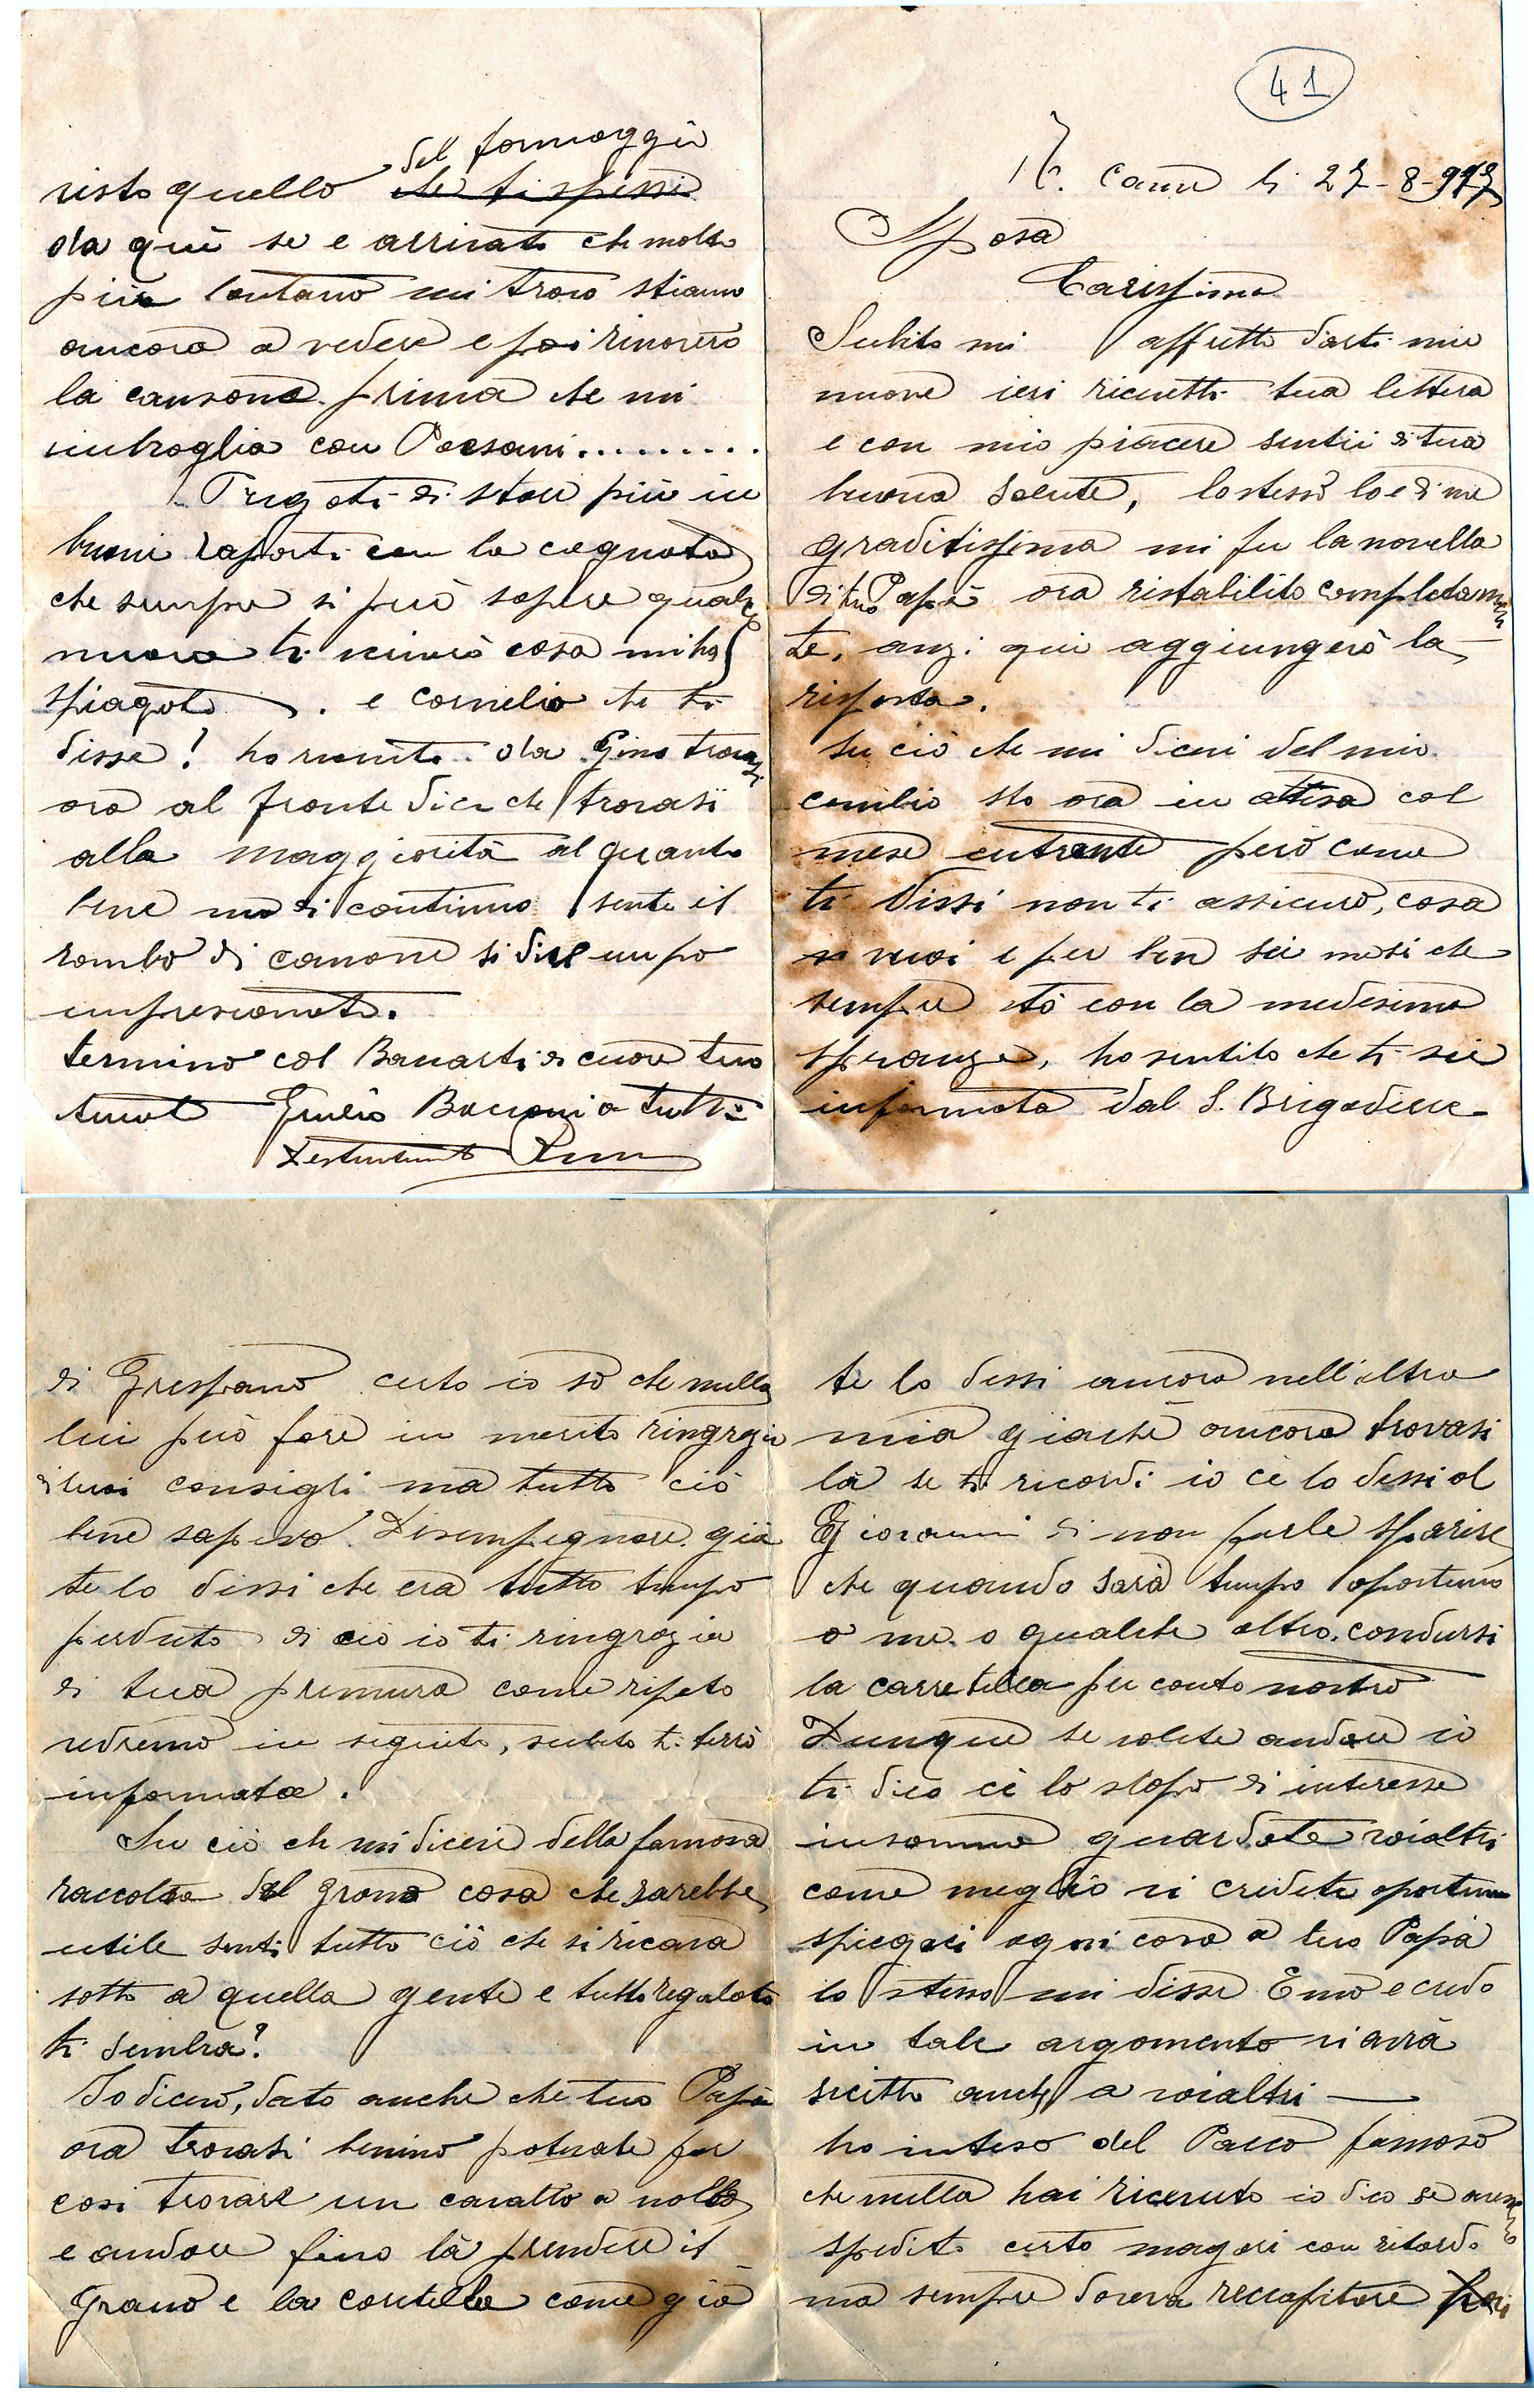 41
li 27-8-917
Sposa
Carissima
Subito mi affretto darti mie
nuove ieri ricevetti tua lettera
e con mio piacere sentii di tua
buona salute, lo stesso lo è di me
graditissima mi fu la novella
di tuo Papà ora ristabilito completamen
te, anzi qui aggiungerò la
risposta.
Su ciò che mi dicevi del mio
cambio sto ora in attesa col
mese entrante però come
ti dissi non ti assicuro, cosa
vuoi è per ben sei mesi che
sempre stò con la medesima
speranza, ho sentito che ti sei
informata dal S. Brigadiere
di Crespano certo io sò che nulla
lui può fare in merito ringrazio
i tuoi consigli ma tutto ciò
bene sapevo. Disimpegnare già
te lo dissi che era tutto tempo
perduto di ciò io ti ringrazio
di tua premura come ripeto
vedremo in seguito, subito ti terrò
informata.
Su ciò che mi dicevi della famosa
raccolta del grano cosa che sarebbe
utile senti tutto ciò che si ricava
sotto a quella gente e tutto regalato
ti sembra?
Io dicevo, dato anche che tuo Papà
ora trovasi benino potevate per
cosi trovare un cavallo a nollo
e andare fino là prendere il
grano e la caretella come già
te lo dissi ancora nell'altra
mia giachè ancora trovasi
là se ti ricordi io cè lo dissi al
Giovanni di non farle sparire
che quando sarà tempo oportuno
o me o qualche altro condursi
la carretella per conto nostro
Dunque se volete andare io
ti dico cè lo scopo di interesse
insomma guardate voialtri
come meglio vi credete oportuno
spiegaci ogni cosa a tuo Papà
lo stesso mi disse Emo e credo
in tale argomento vi avrà
scritto anche a voialtri
ho inteso del Pacco famoso
che nulla hai ricevuto io dico se avessero
spedito certo magari con ritardo
ma sempre doveva reccapitare
visto quello del formaggio
da qui se è arrivato che molto
più lontano mi trovo stiamo
ancora a vedere e poi rinoverò
la cansone prima che mi
imbroglia con Passani.........
Pregoti di stare più in
buoni raporti con la cognata
che sempre si può sapere qualche
nuova ti invio cosa mi ha
spiagato. e Cornelio che ti
disse! ho ricevuto da Gino trovasi
ora al fronte dice che trovasi
alla maggiorità al quanto
bene ma di continuo sente il
rombo di canone si dice un po
impresionato.
termino col Baciarti di cuore tuo
Giulio Bacioni a tutti